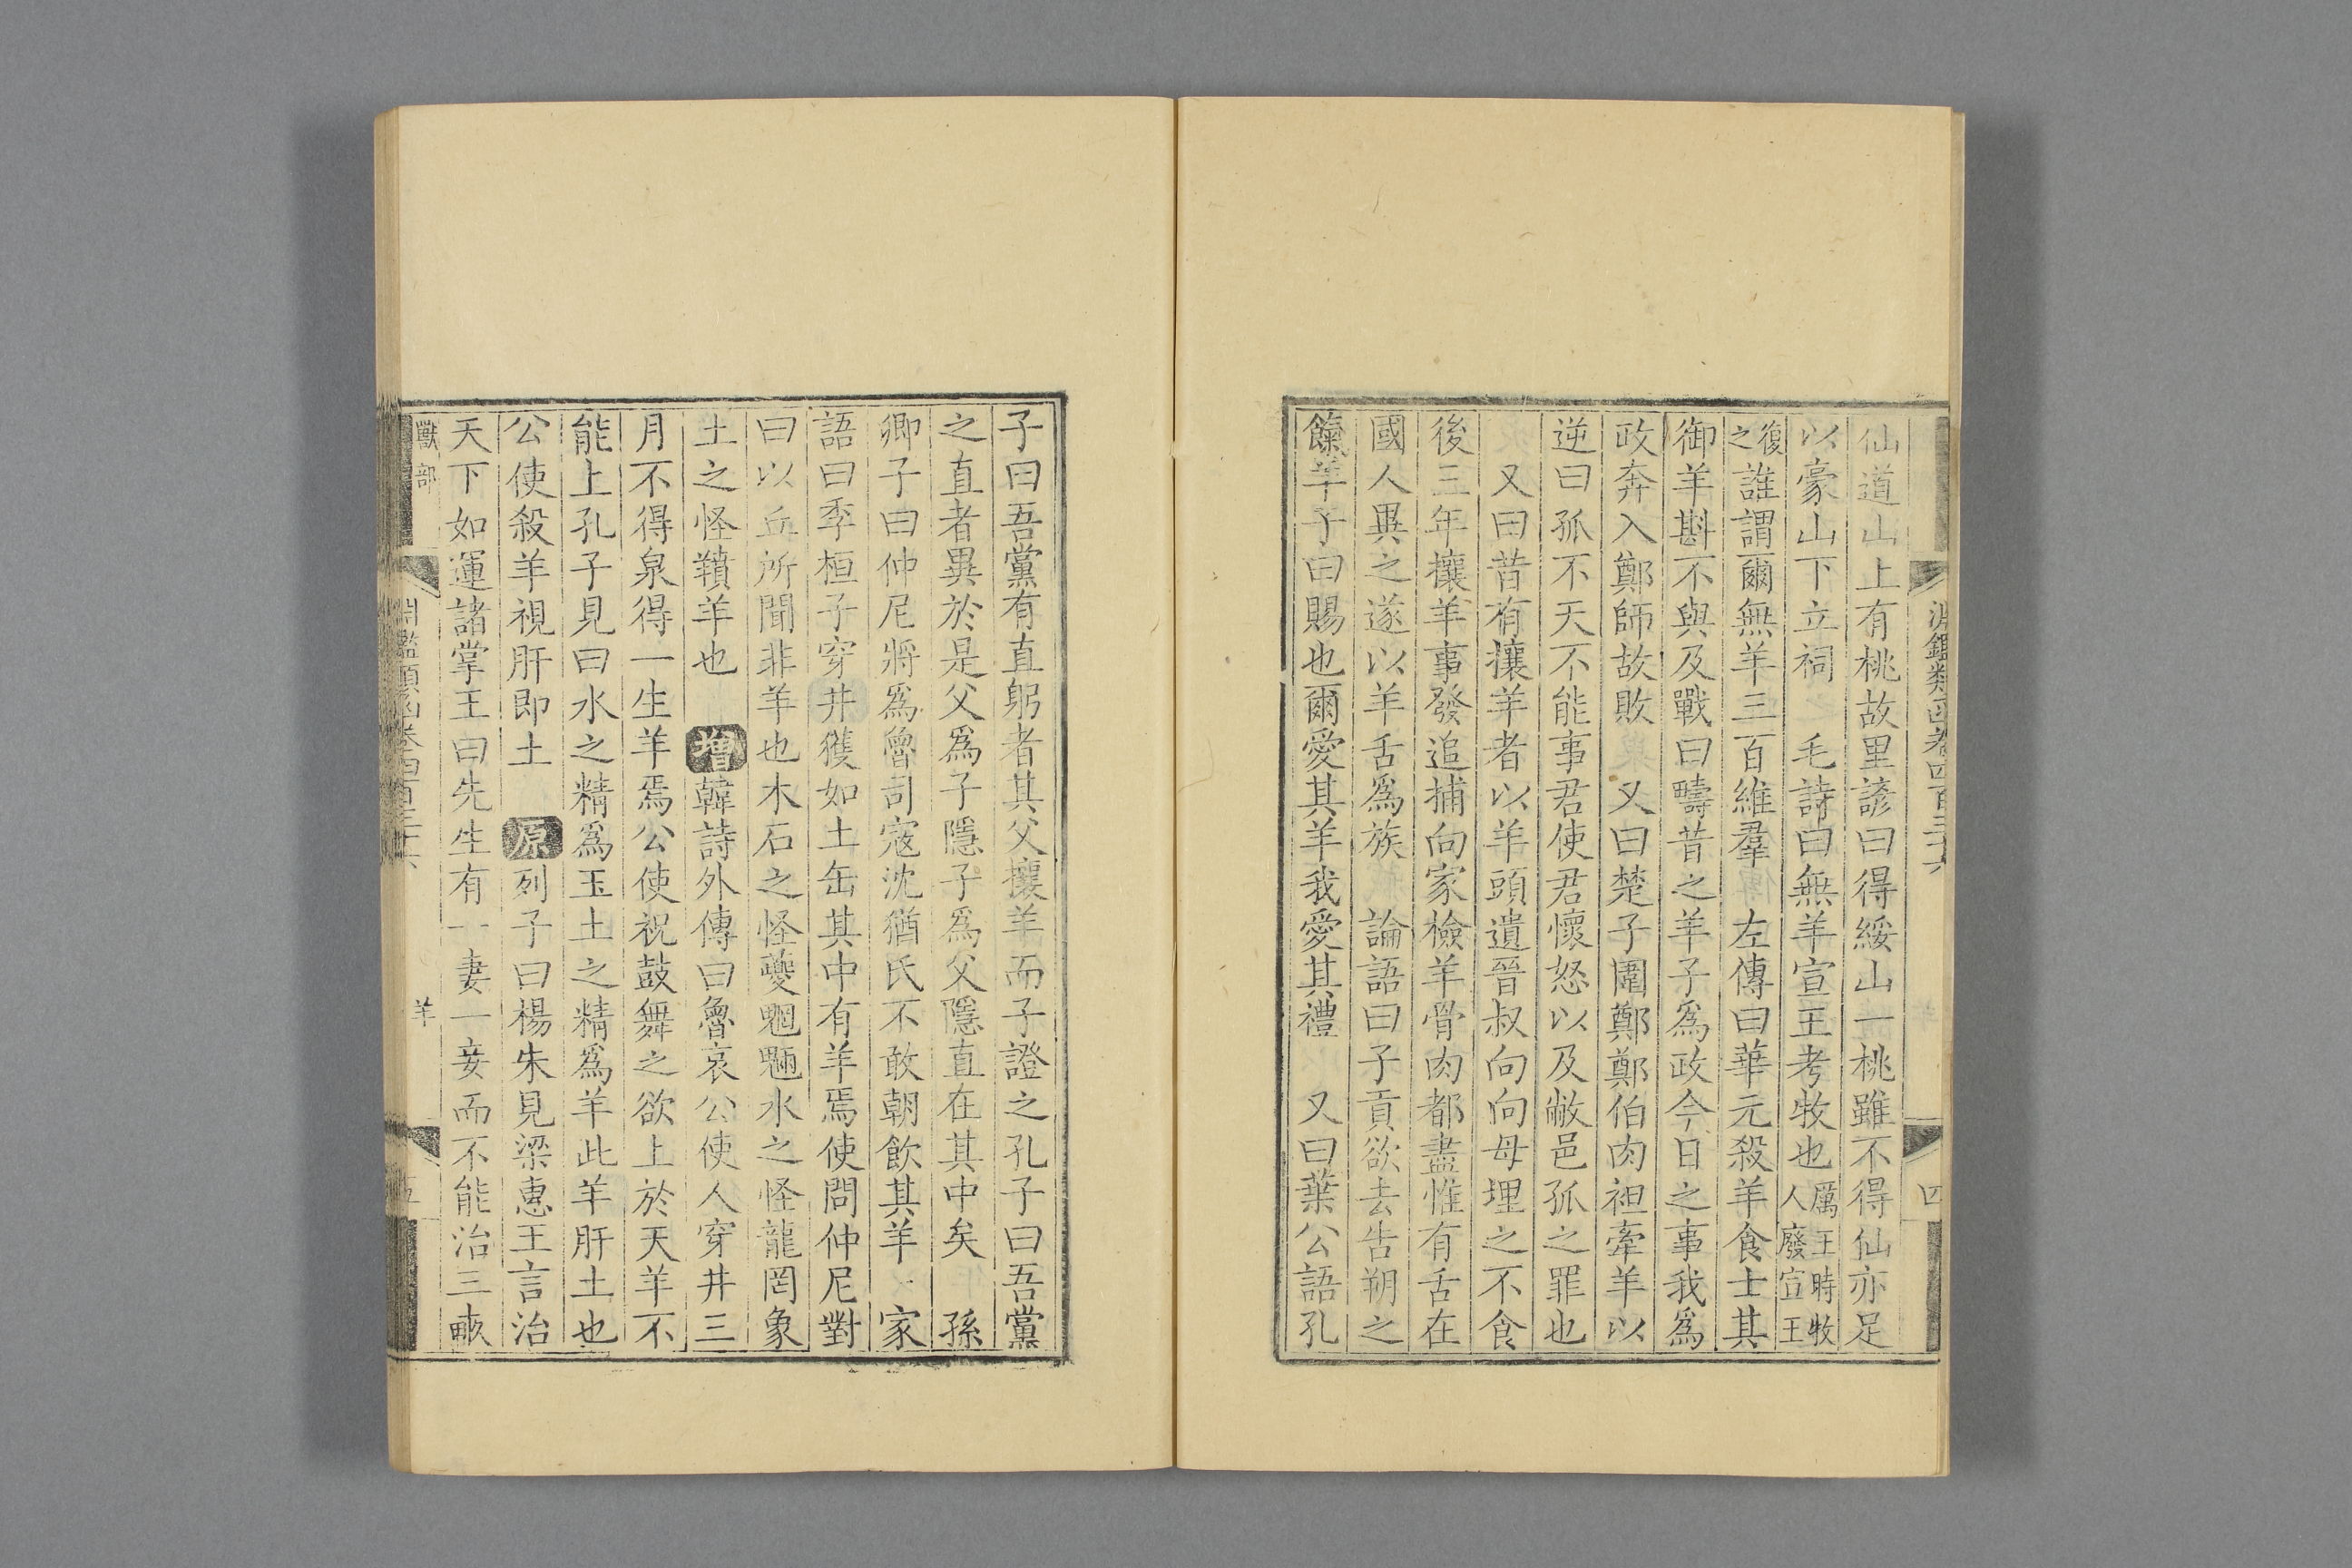 淵鑑類函卷四百三十六
四
仙道山上有桃故里諺曰得綏山一桃雖不得仙亦足
以豪山下立祠 毛詩曰無羊宣王考牧也厲王時牧人廢宣王
復之誰謂爾無羊三百維羣 左傳曰華元殺羊食士其
御羊斟不與及戰曰疇昔之羊子為政今日之事我爲
政奔入鄭師故敗 又曰楚子圍鄭鄭伯肉袒牽羊以
逆曰孤不天不能事君使君懷怒以及敝邑孤之罪也
又曰昔有攘羊者以羊頭遺晉叔向向母埋之不食
後三年攘羊事發追捕向家檢羊骨肉都盡惟有舌在
國人異之遂以羊舌爲族 論語曰子貢欲去告朔之
餼羊子曰賜也爾愛其羊我愛其禮 又曰葉公語孔
子曰吾黨有直躬者其父攘羊而子證之孔子曰吾黨
之直者異於是父爲子隱子爲父隱直在其中矣 孫
卿子曰仲尼將爲魯司寇沈猶氏不敢朝飲其羊 家
語曰季桓子穿井獲如土缶其中有羊焉使問仲尼對
曰以丘所聞非羊也木石之怪夔魍魎水之怪龍罔象
土之怪羵羊也 增韓詩外傳曰魯哀公使人穿井三
月不得泉得一生羊焉公使祝鼓舞之欲上於天羊不
能上孔子見曰水之精爲玉土之精爲羊此羊肝土也
公使殺羊視肝即土 原列子曰楊朱見梁惠王言治
天下如運諸掌王曰先生有一妻一妾而不能治三畝
獸部
淵鑑類函卷四百三十六
羊
五